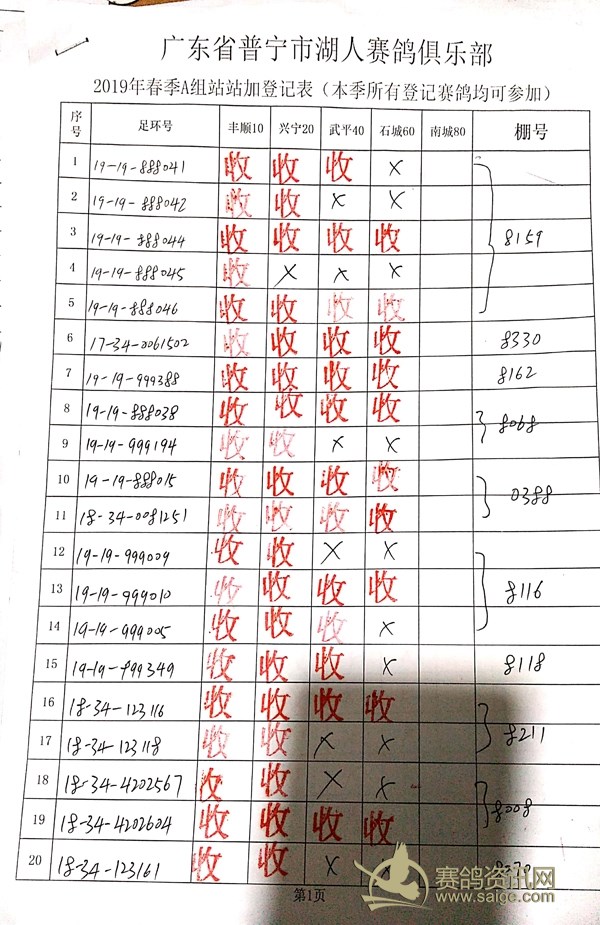 广东省普宁市湖人赛鸽俱乐部
2019年春季A组站站加登记表（本季所有登记赛鸽均可参加）
序号 足环号 丰顺10 兴宁20 武平40 石城60 南城80 棚号
1 19-19-888041 收 收 收 ×
2 19-19-888042 收 收 × ×
3 19-19-888044 收 收 收 收 8159
4 19-19-888045 收 × × ×
5 19-19-888046 收 收 收 收
6 17-34-0061502 收 收 收 收 8330
7 19-19-999388 收 收 收 收 8162
8 19-19-888038 收 收 收 收 8068
9 19-19-999194 收 收 × ×
10 19-19-888015 收 收 收 收 0388
11 18-34-0081251 收 收 收 收
12 19-19-999009 收 收 × ×
13 19-19-999010 收 收 收 收 8116
14 19-19-999005 收 收 收 ×
15 19-19-999349 收 收 收 × 8118
16 18-34-123116 收 收 收 收 8211
17 18-34-123118 收 收 × ×
18 18-34-4202567 收 收 × × 8008
19 18-34-4202604 收 收 收 收
20 18-34-123161 收 收 × ×
第1页
赛鸽资讯网
www.saige.com